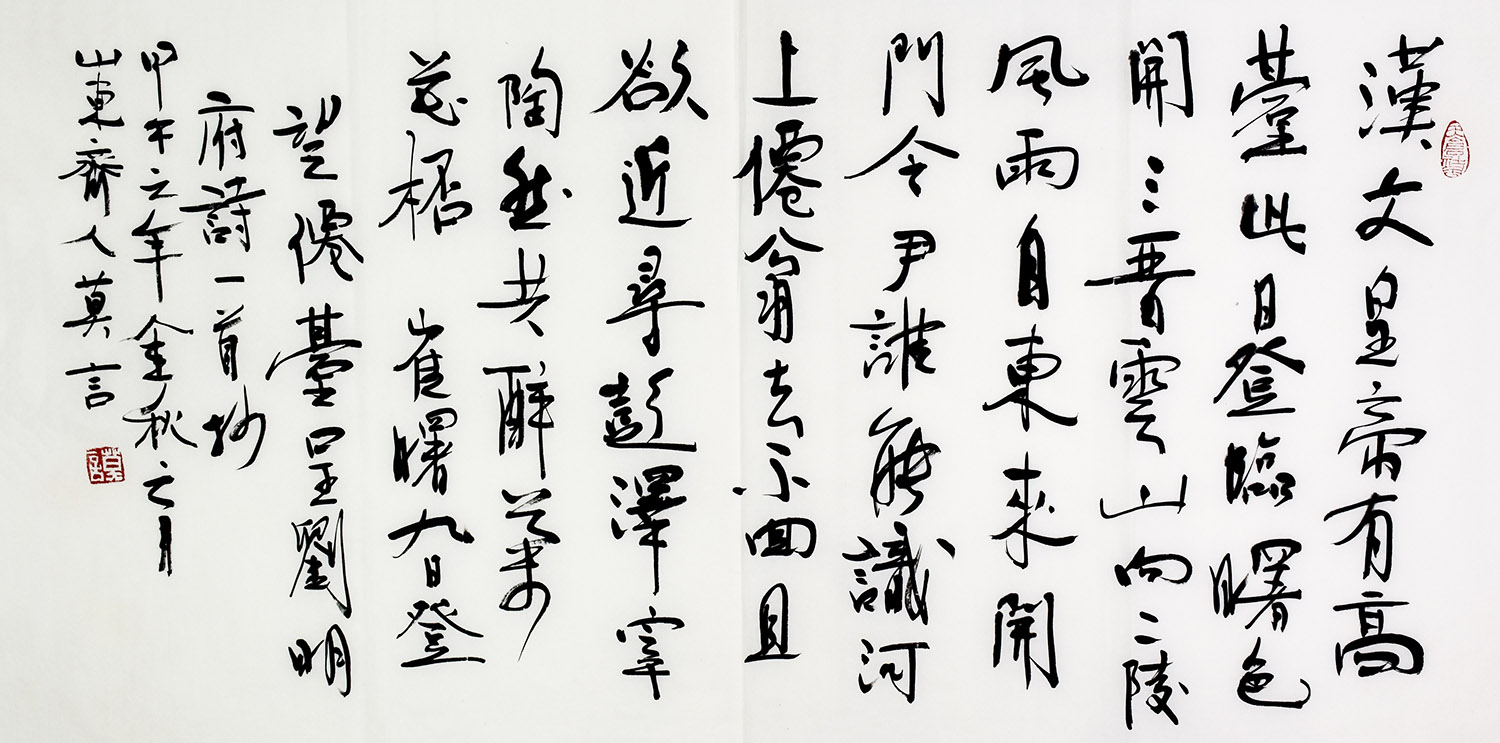 漢文皇帝有高
臺此日登臨曙色
開三晉雲山向二陵
風雨自東來開
門令尹誰能識河
上僊翁去不回且
欲近尋彭澤宰
陶然共醉菊
花桮 崔曙九日登
望僊臺呈劉明
府詩一首抄
甲午之年金秋之月
山東齊人莫言
莫言